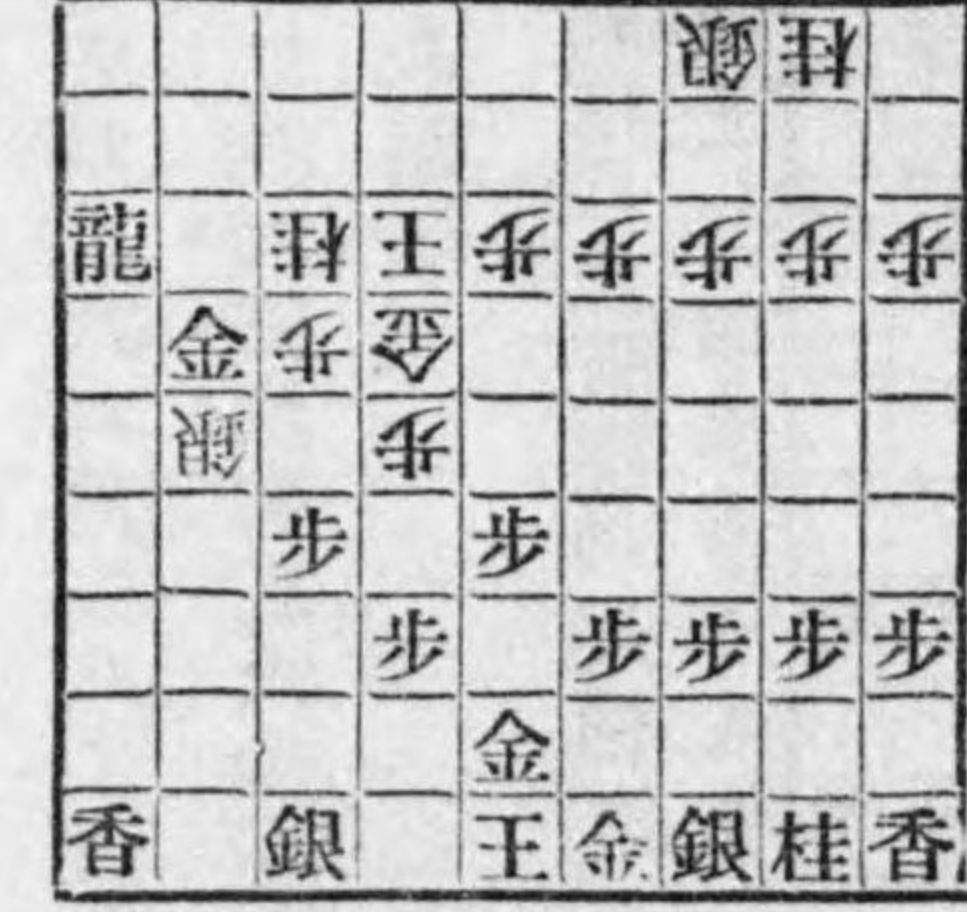 銀桂
龍桂王歩歩歩歩歩
金歩金
銀歩
歩歩
歩歩歩歩歩
金
香銀王金銀桂香